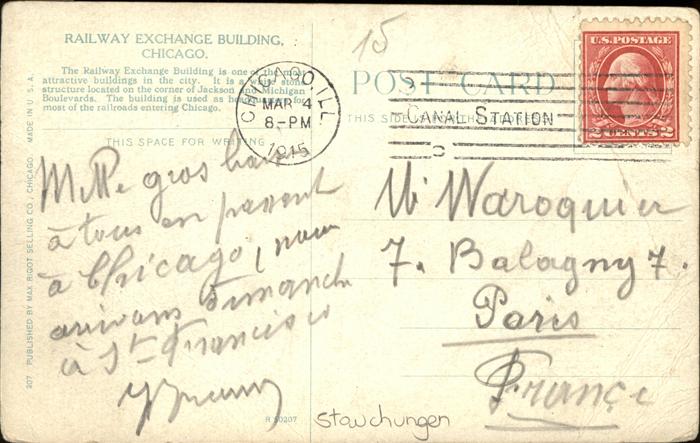 RAILWAY EXCHANGE BUILDING,
CHICAGO.
The Railway Exchange Building is one of the most
attractive buildings in the city. It is a white stone
structure located on the corner of Jackson and Michigan
Boulevards. The building is used as headquarters for
most of the railroads entering Chicago.
THIS SPACE FOR WRITING
Mille gros baisers
à tous en passant
à Chicago, nous
arrivons Dimanche
à St Francisco
CHICAGO, ILL
MAR 4
8-PM
1915
CANAL STATION
15
POST CARD
THIS SIDE
U.S. POSTAGE
2 CENTS 2
Waroquier
7. Balagny 7.
Paris
France
207 PUBLISHED BY MAX RIGOT SELLING CO., CHICAGO. MADE IN U.S.A.
R 50207
Stauchungen